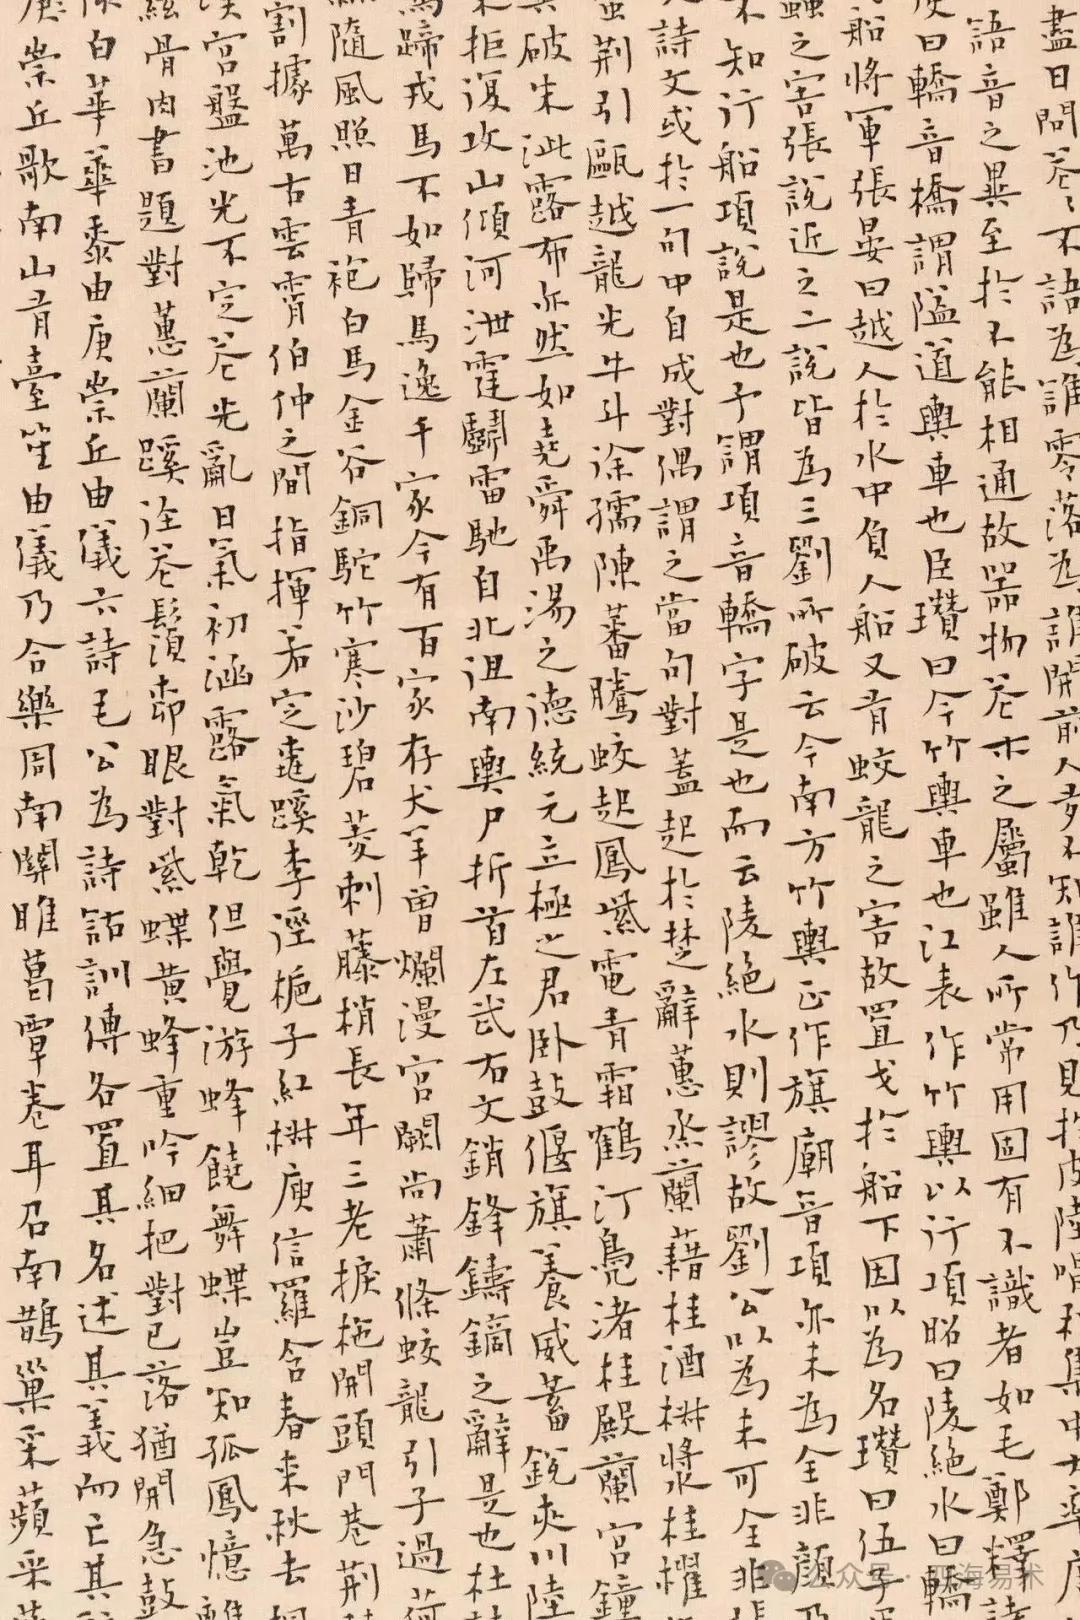 盡日問花花不語為誰零落為誰開前人多不知誰作乃見於皮陸唱和集中大率唐
語音之異至於不能相通故器物花木之屬雖人所常用固有不識者如毛鄭釋詩
曰轎音橋謂隘道輿車也臣瓚曰今竹輿車也江表作竹輿以行項昭曰陵絕水曰轎
船將軍張晏曰越人於水中負人船又有蛟龍之害故置戈於船下因以為名瓚曰伍子
蟲之害張說近之二說皆為三劉所破云今南方竹輿正作旗廟音項亦未為全非顏乃
不知行船項說是也予謂項音轎字是也而云陵絕水則謬故劉公以為未可全非張
詩文或於一句中自成對偶謂之當句對蓋起於楚辭蕙烝蘭藉桂酒椒漿桂櫂
蠻荊引甌越龍光牛斗徐孺陳蕃騰蛟起鳳紫電青霜鶴汀鳧渚桂殿蘭宮鐘
破朱泚露布亦然如堯舜禹湯之德統元立極之君卧鼓偃旗養威蓄銳夾川陸
拒復攻山傾河泄霆鬬雷馳自北徂南輿尸折首左武右文銷鋒鑄鏑之辭是也杜
蹄戎馬不如歸馬逸千家今有百家存犬羊曾爛漫宮闕尚蕭條蛟龍引子過荷
隨風照日青袍白馬金谷銅駝竹寒沙碧菱刺藤梢長年三老捩柂開頭門巷荊
割據萬古雲霄伯仲之間指揮若定桃蹊李徑梔子紅椒庾信羅含春來秋去
宮盤池光不定花光亂日氣初涵露氣乾但覺游蜂饒舞蝶豈知孤鳳憶離
絃骨肉書題對蕙蘭蹊徑花鬚柳眼對紫蝶黃蜂重吟細把對已落猶開急鼓
白華華黍由庚崇丘由儀六詩毛公為詩詁訓傳各置其名述其義而亡其
崇丘歌南山有臺笙由儀乃合樂周南關雎葛覃卷耳召南鵲巢采蘋采
公众号·四海易术